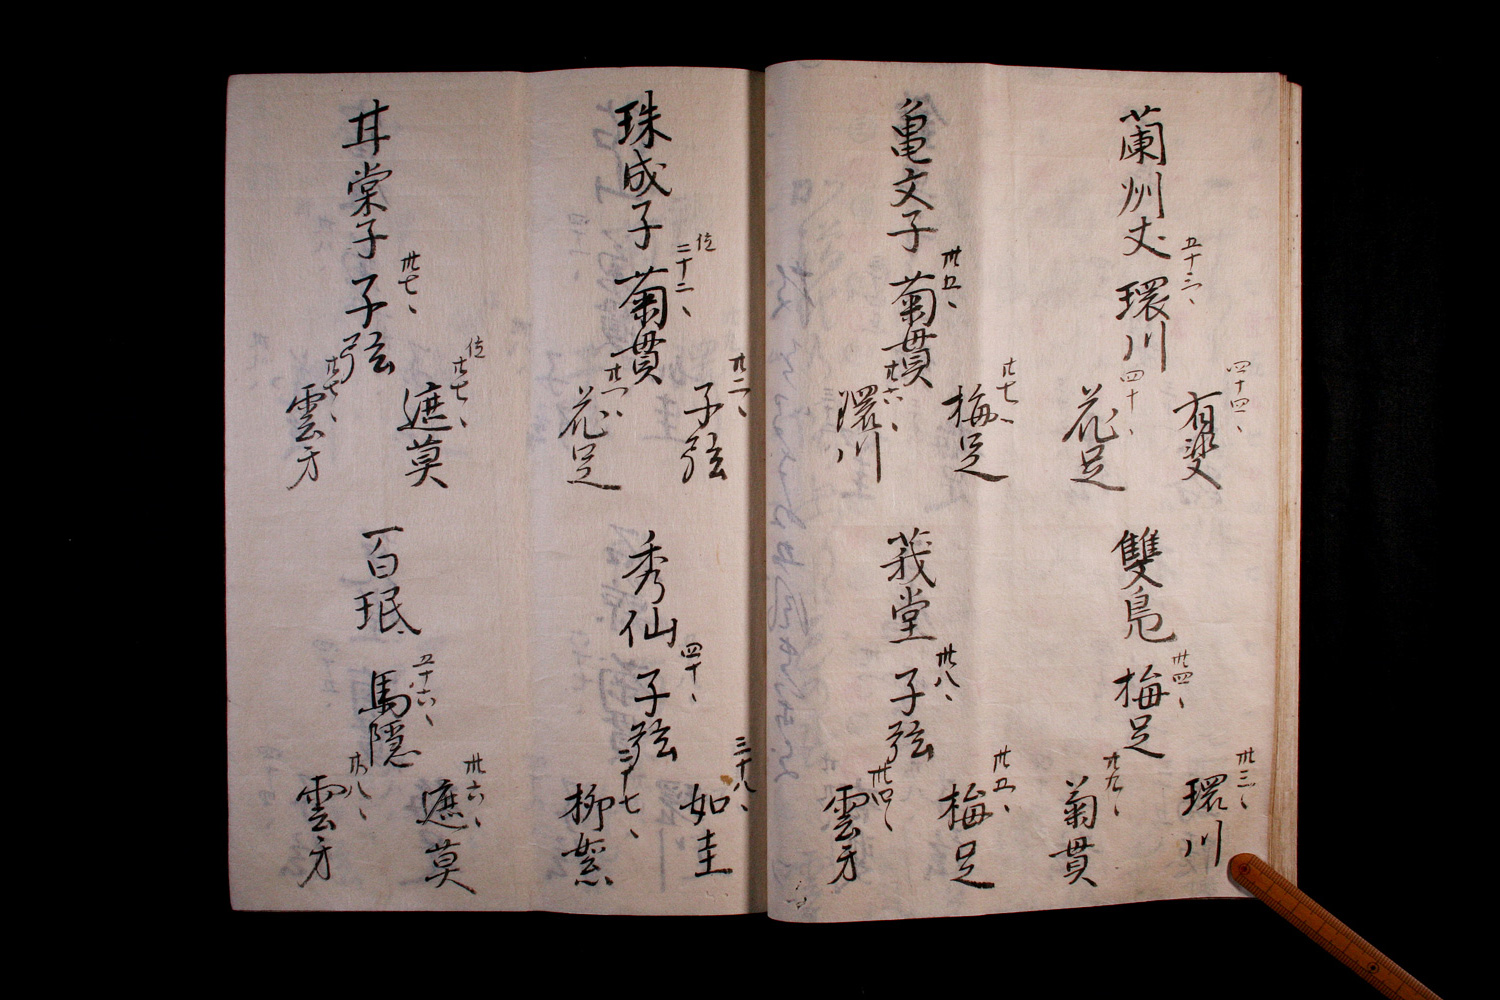 蘭州丈 環川
五十三、
有斐
四十四、
花足
四十、
雙鳬 梅足
卅四、
環川
卅三、
菊貫
廿九、
亀文子 菊貫
卅五、
梅足
廿七、
環川
廿六、
莪堂 子弦
卅八、
梅足
卅五、
雲牙
卅四、
珠成子 菊貫
位
二十二、
子弦
廿二、
花足
廿一、
秀仙 子弦
四十、
如圭
三十八、
柳絮
三十七、
井棠子 子弦
卅七、
遮莫
位
廿七、
雲牙
廿七、
百珉 馬隠
五十六、
遮莫
卅六、
雲牙
廿八、